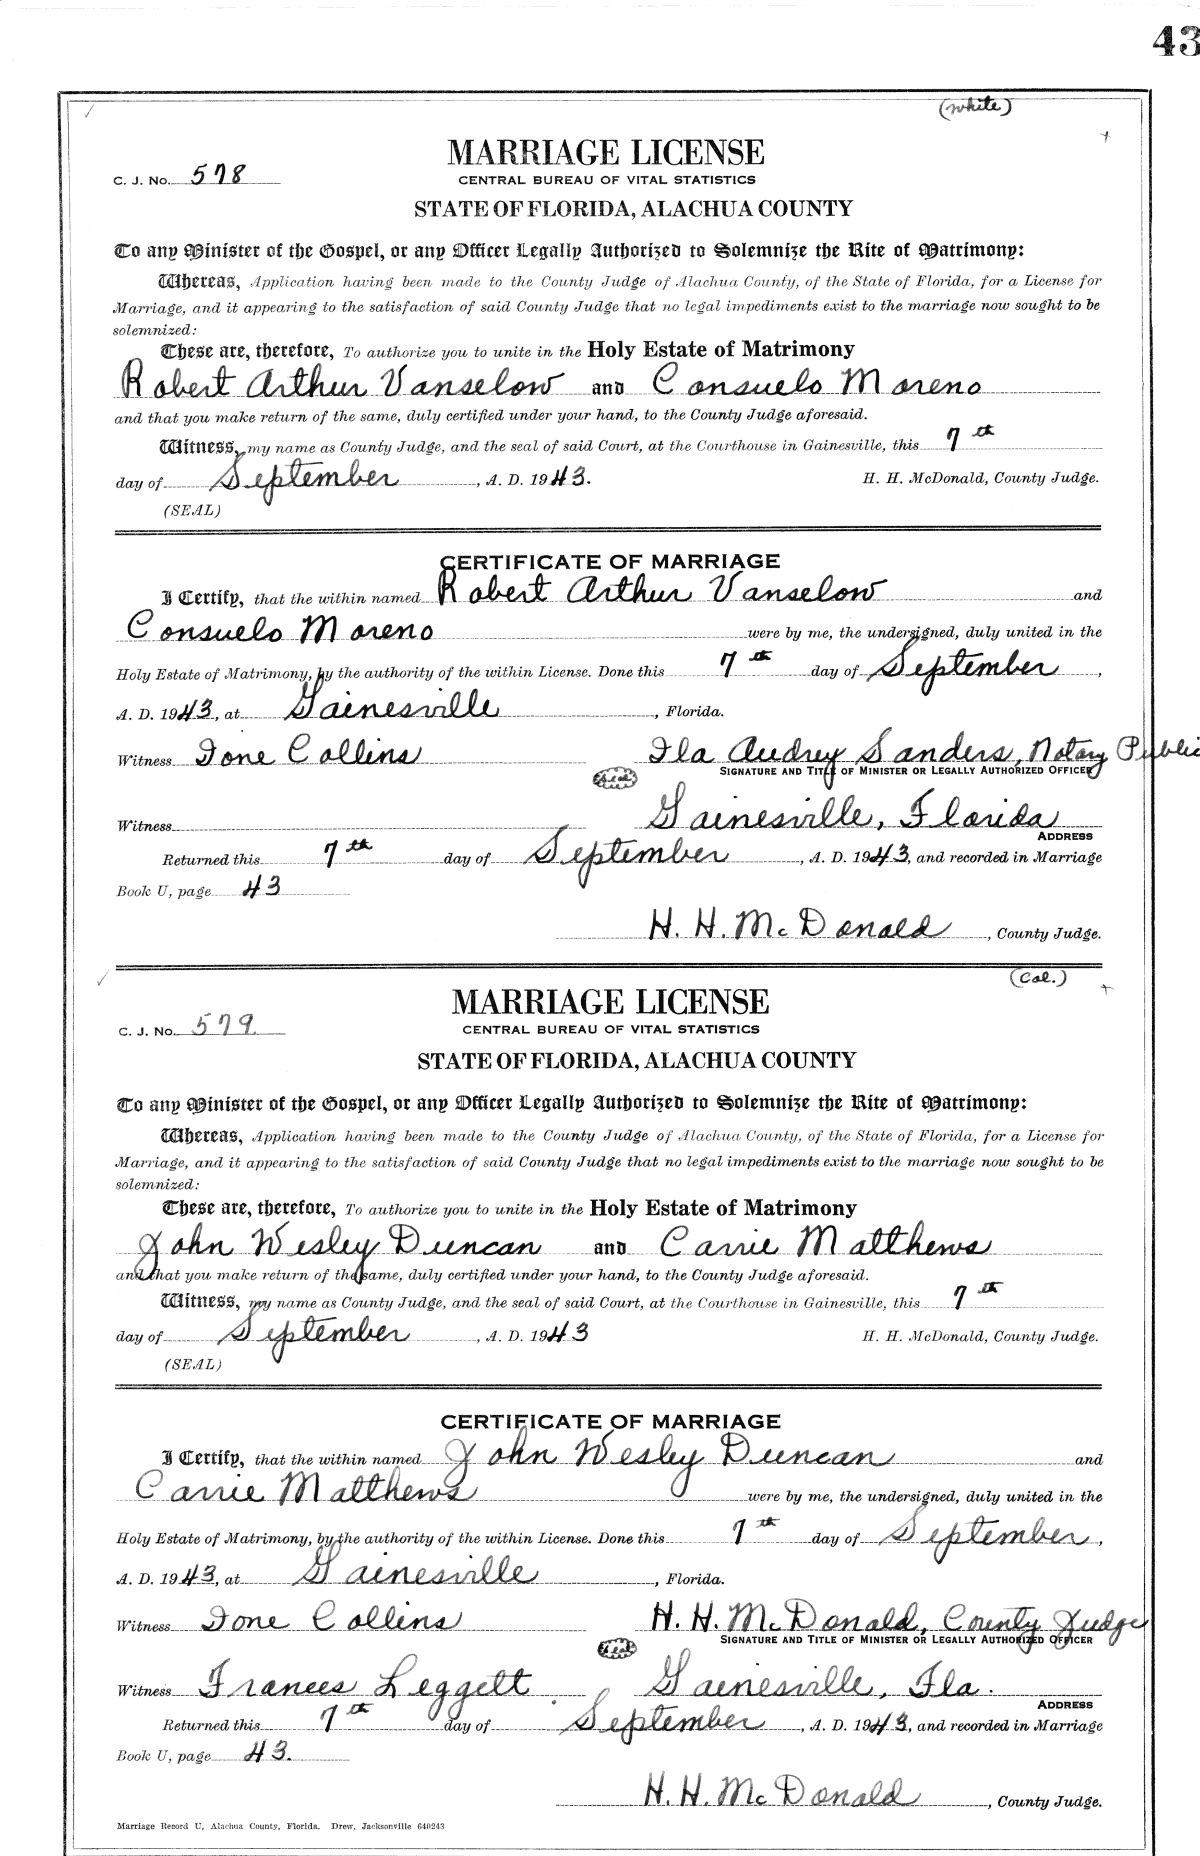 43
(white)
MARRIAGE LICENSE
C. J. No. 578
CENTRAL BUREAU OF VITAL STATISTICS
STATE OF FLORIDA, ALACHUA COUNTY
To any Minister of the Gospel, or any Officer Legally Authorized to Solemnize the Rite of Matrimony:
Whereas, Application having been made to the County Judge of Alachua County, of the State of Florida, for a License for
Marriage, and it appearing to the satisfaction of said County Judge that no legal impediments exist to the marriage now sought to be
solemnized:
These are, therefore, To authorize you to unite in the Holy Estate of Matrimony
Robert Arthur Vanselow and Consuelo Moreno
and that you make return of the same, duly certified under your hand, to the County Judge aforesaid.
Witness, my name as County Judge, and the seal of said Court, at the Courthouse in Gainesville, this 7th
day of September, A. D. 1943. H. H. McDonald, County Judge.
(SEAL)
CERTIFICATE OF MARRIAGE
I Certify, that the within named Robert Arthur Vanselow and
Consuelo Moreno were by me, the undersigned, duly united in the
Holy Estate of Matrimony, by the authority of the within License. Done this 7th day of September,
A. D. 1943, at Gainesville, Florida.
Witness Ione Collins Ila Audrey Sanders, Notary Public
(Seal) SIGNATURE AND TITLE OF MINISTER OR LEGALLY AUTHORIZED OFFICER
Witness Gainesville, Florida
ADDRESS
Returned this 7th day of September, A. D. 1943, and recorded in Marriage
Book U, page 43
H. H. McDonald, County Judge.
(Col.)
MARRIAGE LICENSE
C. J. No. 579.
CENTRAL BUREAU OF VITAL STATISTICS
STATE OF FLORIDA, ALACHUA COUNTY
To any Minister of the Gospel, or any Officer Legally Authorized to Solemnize the Rite of Matrimony:
Whereas, Application having been made to the County Judge of Alachua County, of the State of Florida, for a License for
Marriage, and it appearing to the satisfaction of said County Judge that no legal impediments exist to the marriage now sought to be
solemnized:
These are, therefore, To authorize you to unite in the Holy Estate of Matrimony
John Wesley Duncan and Carrie Matthews
and that you make return of the same, duly certified under your hand, to the County Judge aforesaid.
Witness, my name as County Judge, and the seal of said Court, at the Courthouse in Gainesville, this 7th
day of September, A. D. 1943 H. H. McDonald, County Judge.
(SEAL)
CERTIFICATE OF MARRIAGE
I Certify, that the within named John Wesley Duncan and
Carrie Matthews were by me, the undersigned, duly united in the
Holy Estate of Matrimony, by the authority of the within License. Done this 7th day of September,
A. D. 1943, at Gainesville, Florida.
Witness Ione Collins H. H. McDonald, County Judge
(Seal) SIGNATURE AND TITLE OF MINISTER OR LEGALLY AUTHORIZED OFFICER
Witness Frances Leggett. Gainesville, Fla.
ADDRESS
Returned this 7th day of September, A. D. 1943, and recorded in Marriage
Book U, page 43.
H. H. McDonald, County Judge.
Marriage Record U, Alachua County, Florida. Drew, Jacksonville 640243